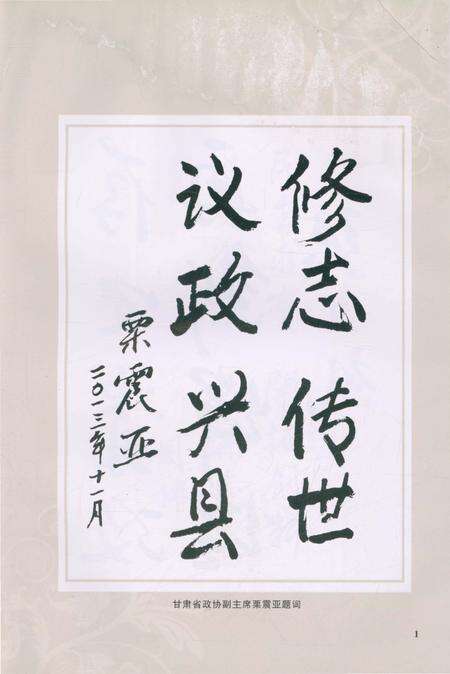 修志传世
议政兴县
栗震亚
二〇一三年十一月
甘肃省政协副主席栗震亚题词
1